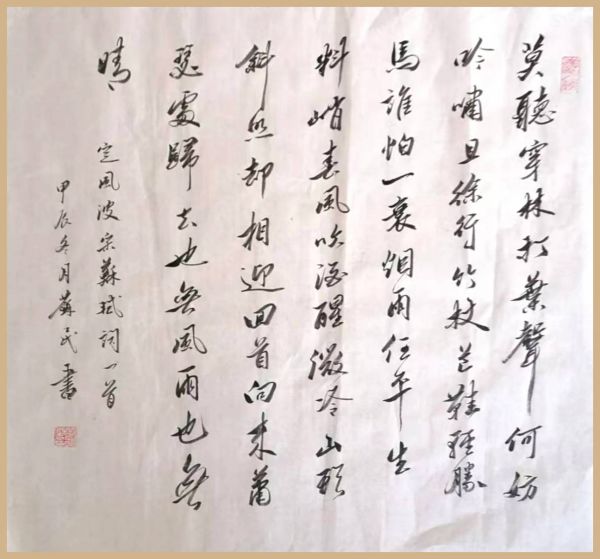 莫聽穿林打葉聲何妨
吟嘯且徐行竹杖芒鞋輕勝
馬誰怕一蓑烟雨任平生
料峭春風吹酒醒微冷山頭
斜照却相迎回首向來蕭
瑟處歸去也無風雨也無
晴
定風波宋蘇軾詞一首
甲辰冬月民書